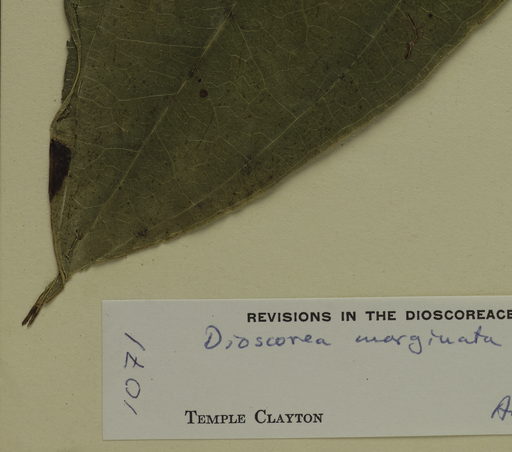 REVISIONS IN THE DIOSCOREACE
Dioscorea marginata
1071
TEMPLE CLAYTON